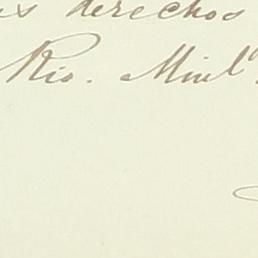 derechos
Rio. Minl.